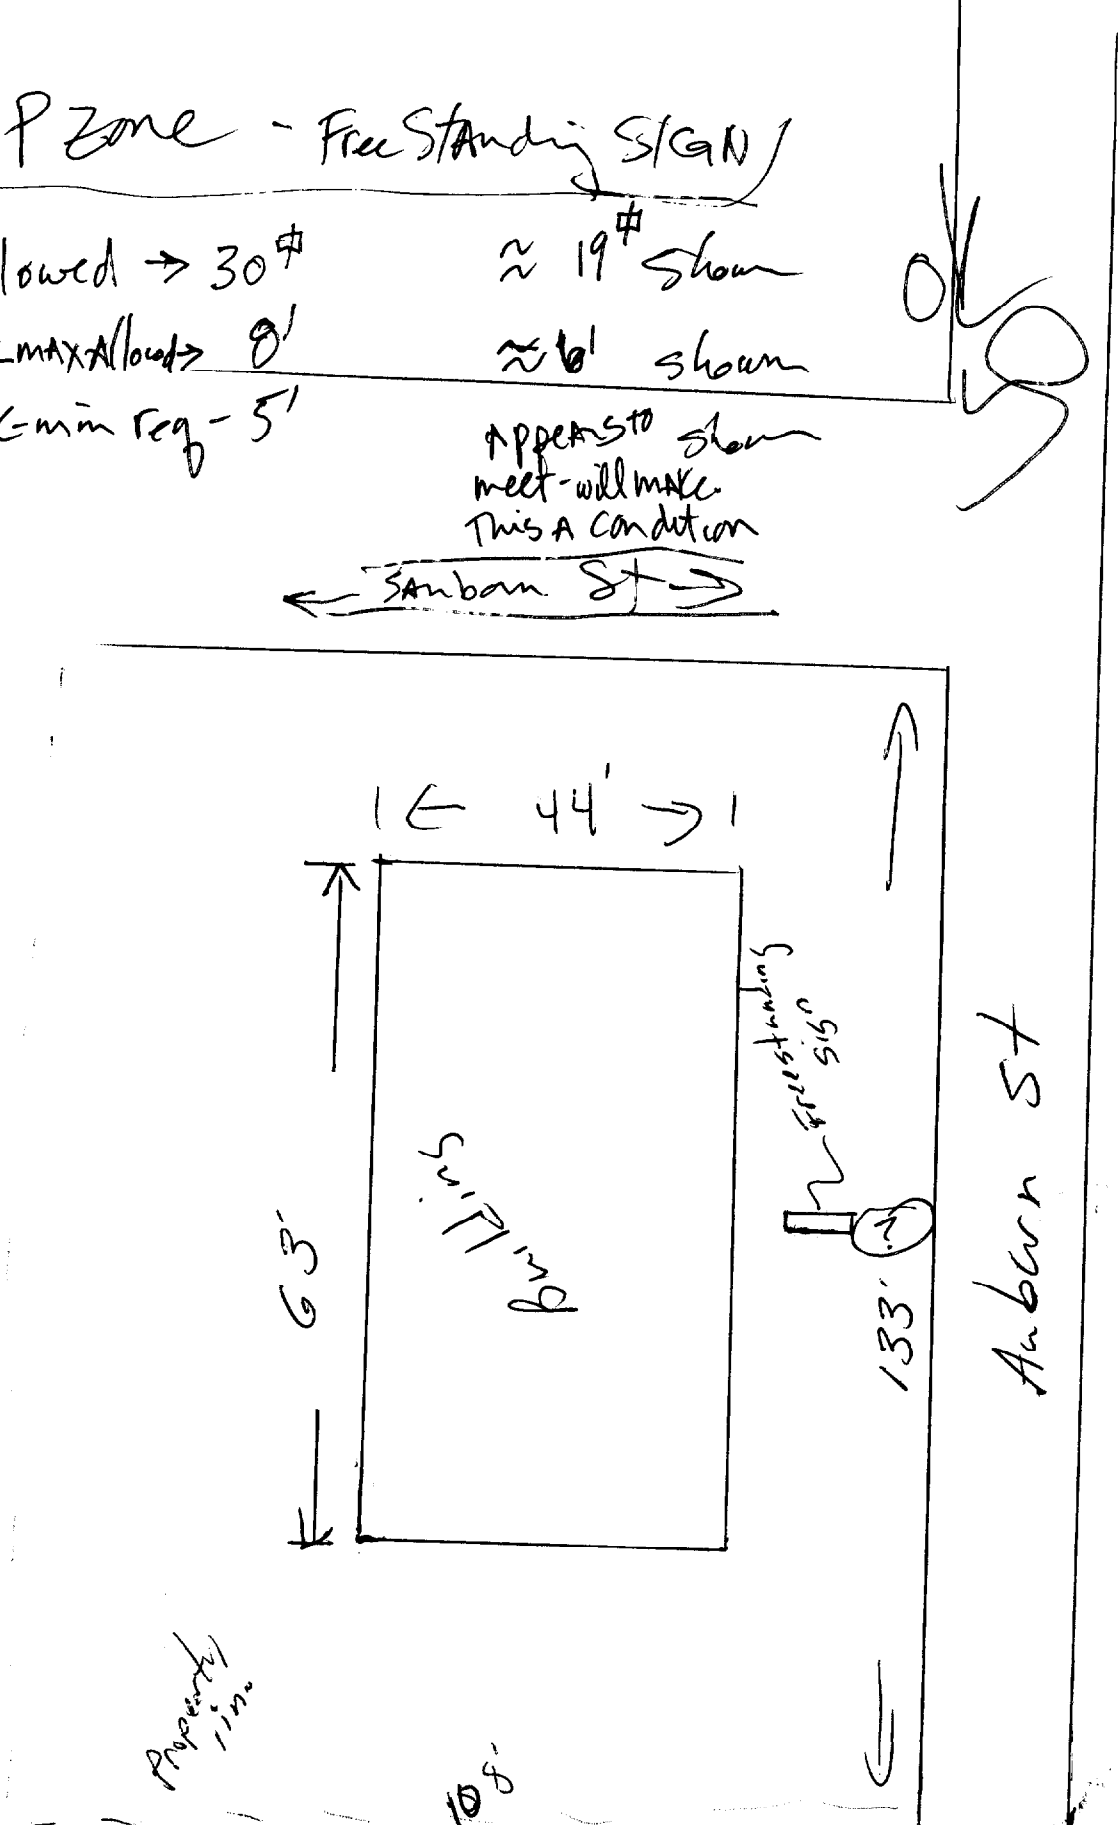 P Zone - Free Standing SIGN
lowed → 30⌗ ≈ 19⌗ shown
-MAX Allowed → 8' ≈ 6' shown
-min req - 5' Appears to shown
meet - will make
This A Condition
OK
← Sanborn St →
← 44' →
Freestanding
Sign
63'
Building
?
133'
Auburn St
Property
line
108'